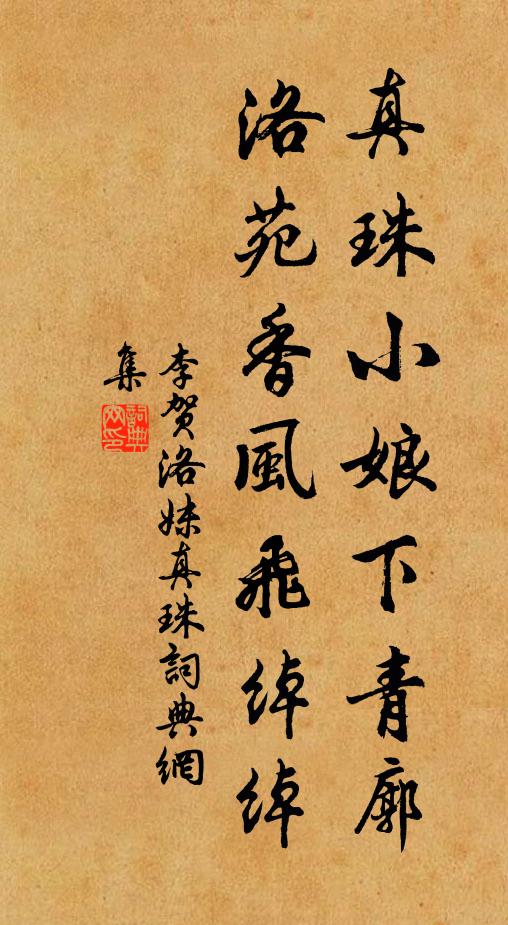 真珠小娘下青廓
洛苑香風飛綽綽
李賀洛姝真珠詞典網
集
詞典
网印